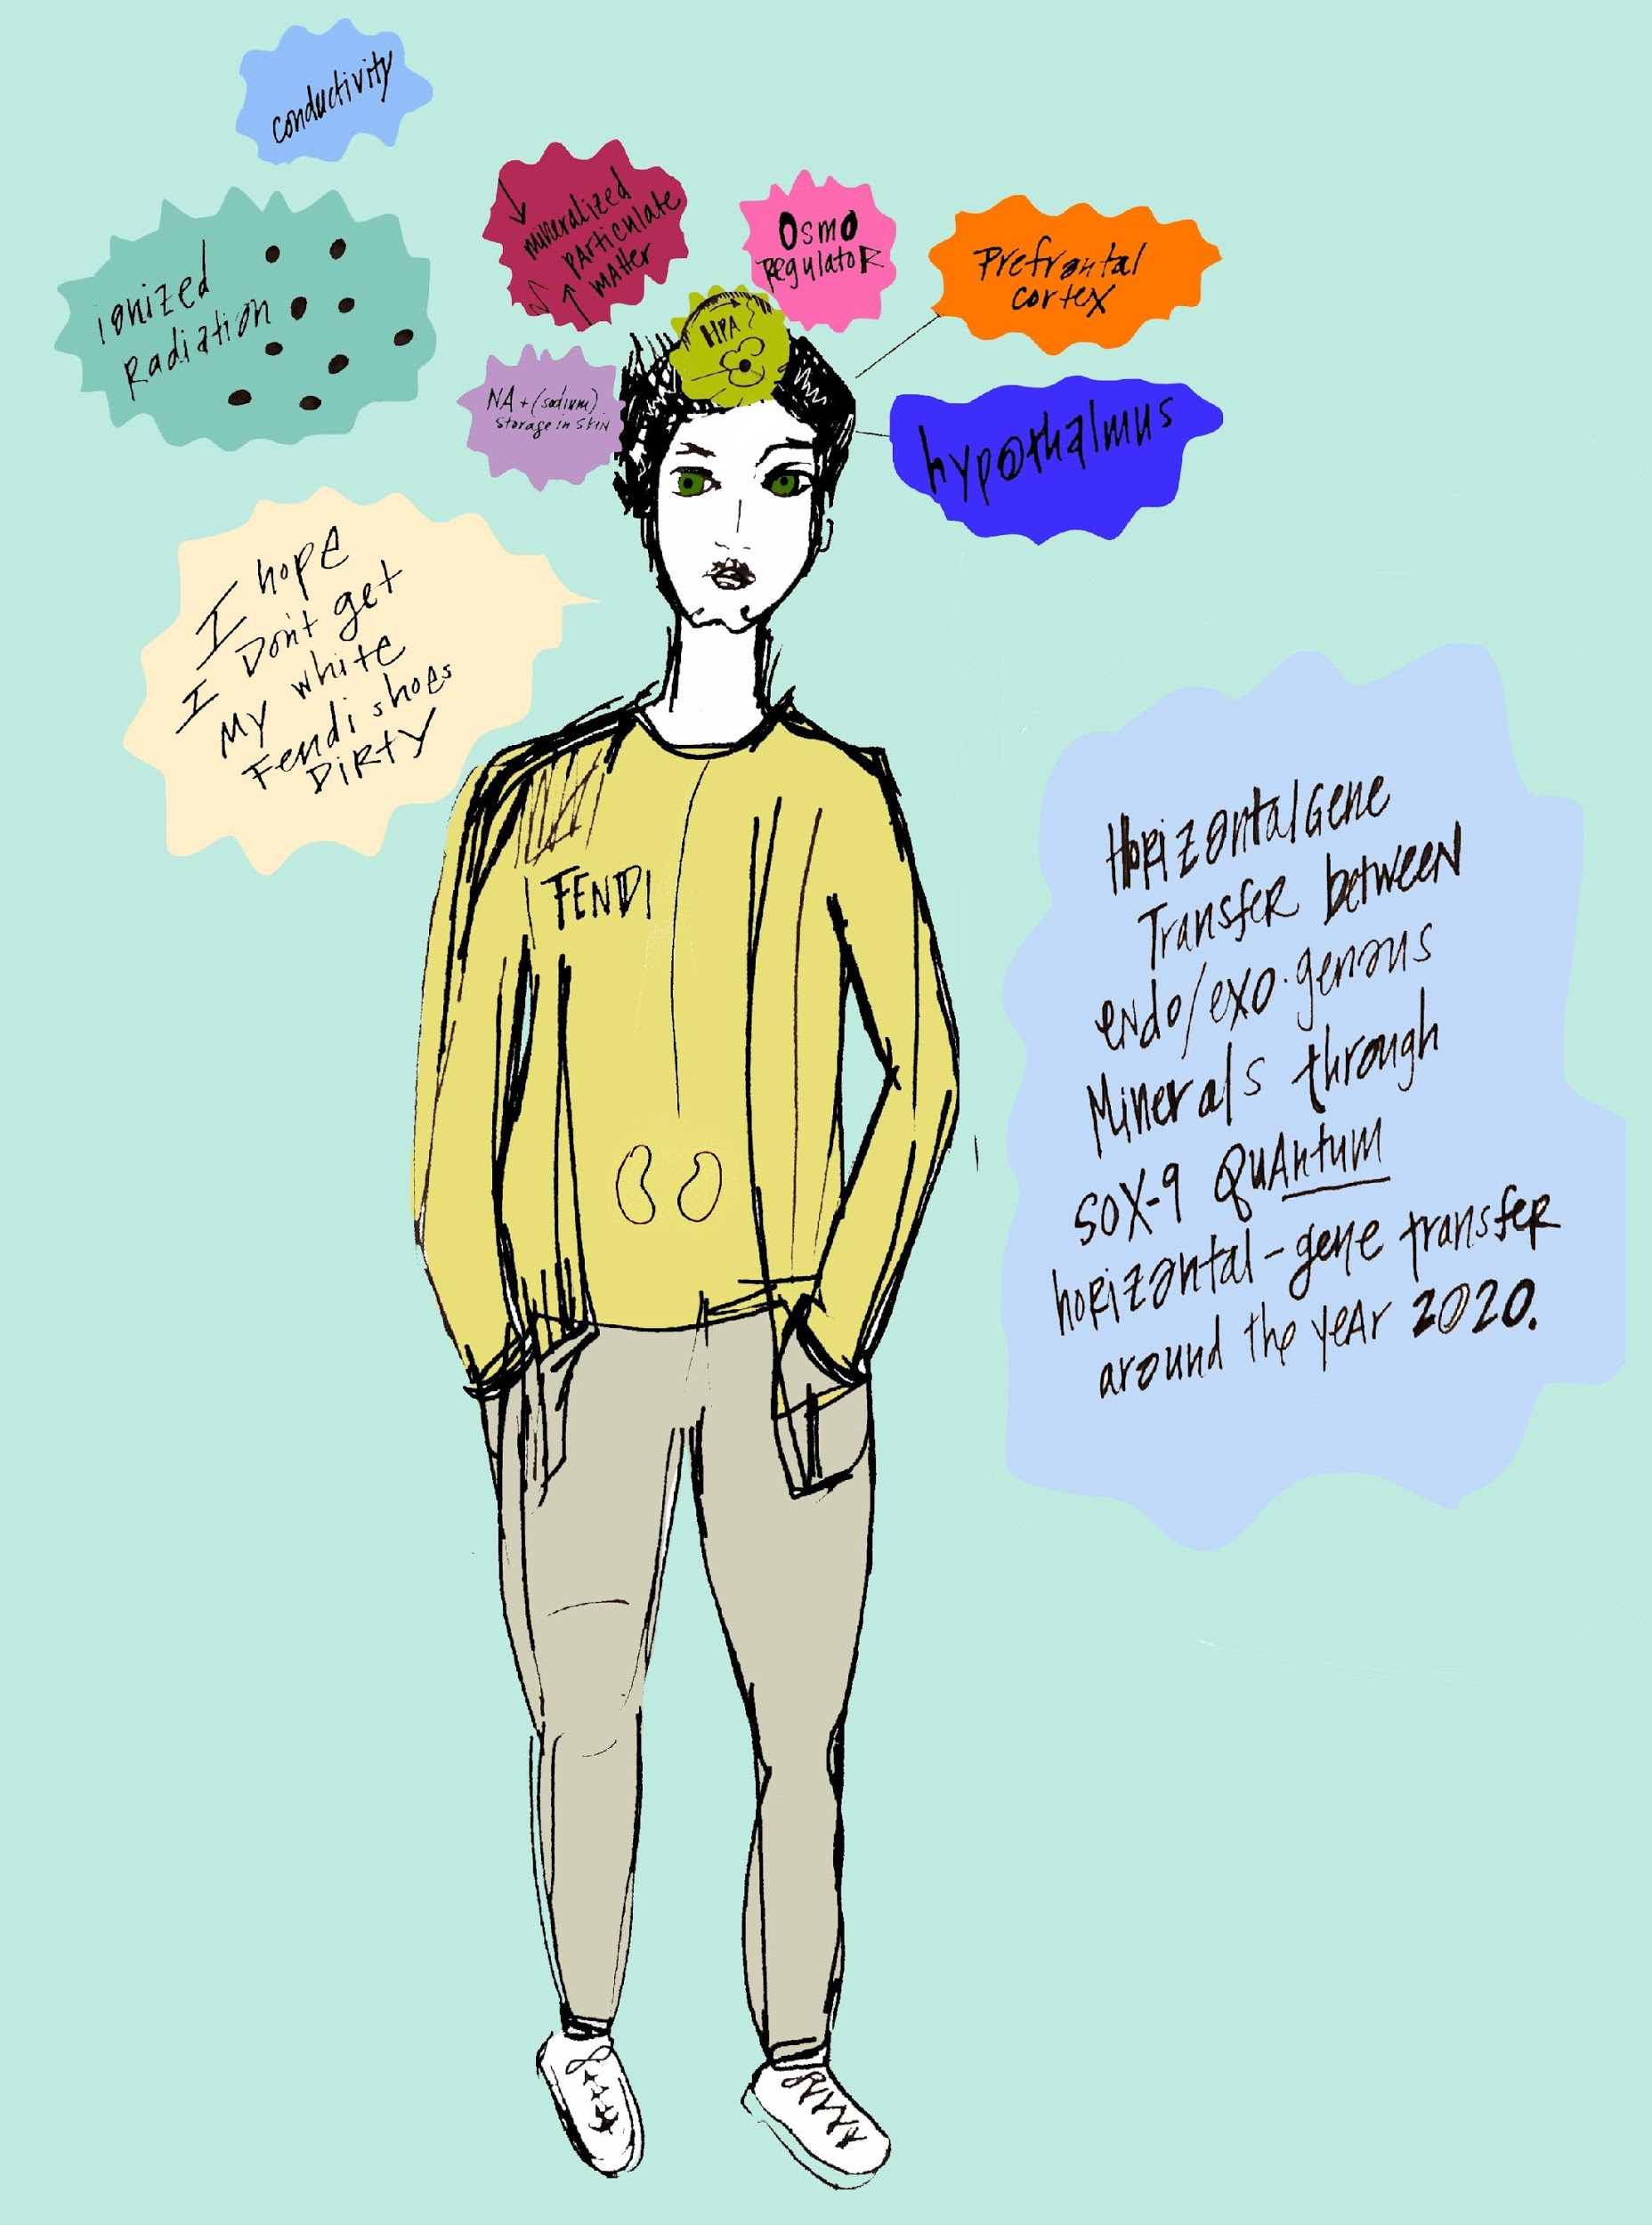 conductivity
ionized
Radiation
mineralized
particulate
matter
Osmo
Regulator
Prefrontal
cortex
HPA
NA + (sodium)
storage in skin
hypothalmus
I hope
I Don't get
My white
Fendi shoes
DIRTY
FENDI
Horizontal Gene
Transfer between
endo/exo·genous
Minerals through
SOX-9 QuAntum
horizontal-gene transfer
around the year 2020.